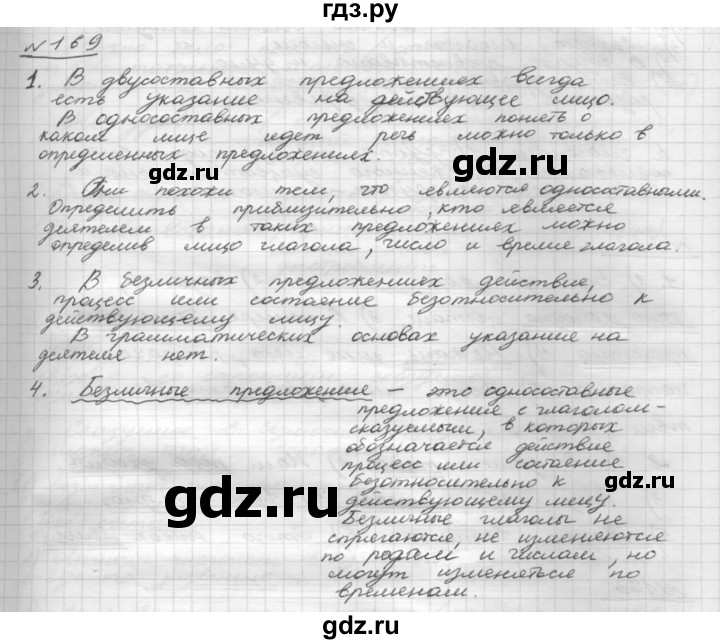 гдз.ру
№ 169
1. В двусоставных предложениях всегда
есть указание на действующее лицо.
В односоставных предложениях понять о
каком лице идет речь можно только в
определенных предложениях.
gdz.ru
gdz.ru
2. Они похожи тем, что являются односоставными.
Определить приблизительно, кто является
деятелем в таких предложениях можно
определив лицо глагола, число и время глагола.
3. В безличных предложениях действие,
процесс или состояние безотносительно к
действующему лицу.
В грамматических основах указания на
деятеля нет.
4. Безличные предложения – это односоставные
предложения с глаголом-
сказуемыми, в которых
обозначается действие
процесс или состаение
безотносительно к
действующему лицу.
Безличные глаголы не
спрягаются, не изменяются
по родам и числам, но
могут изменяться по
временам.
gdz.ru
gdz.ru
gdz.ru
gdz.ru